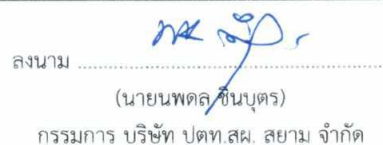 ลงนาม ........................................
(นายนพดล ชินบุตร)
กรรมการ บริษัท ปตท.สผ. สยาม จำกัด